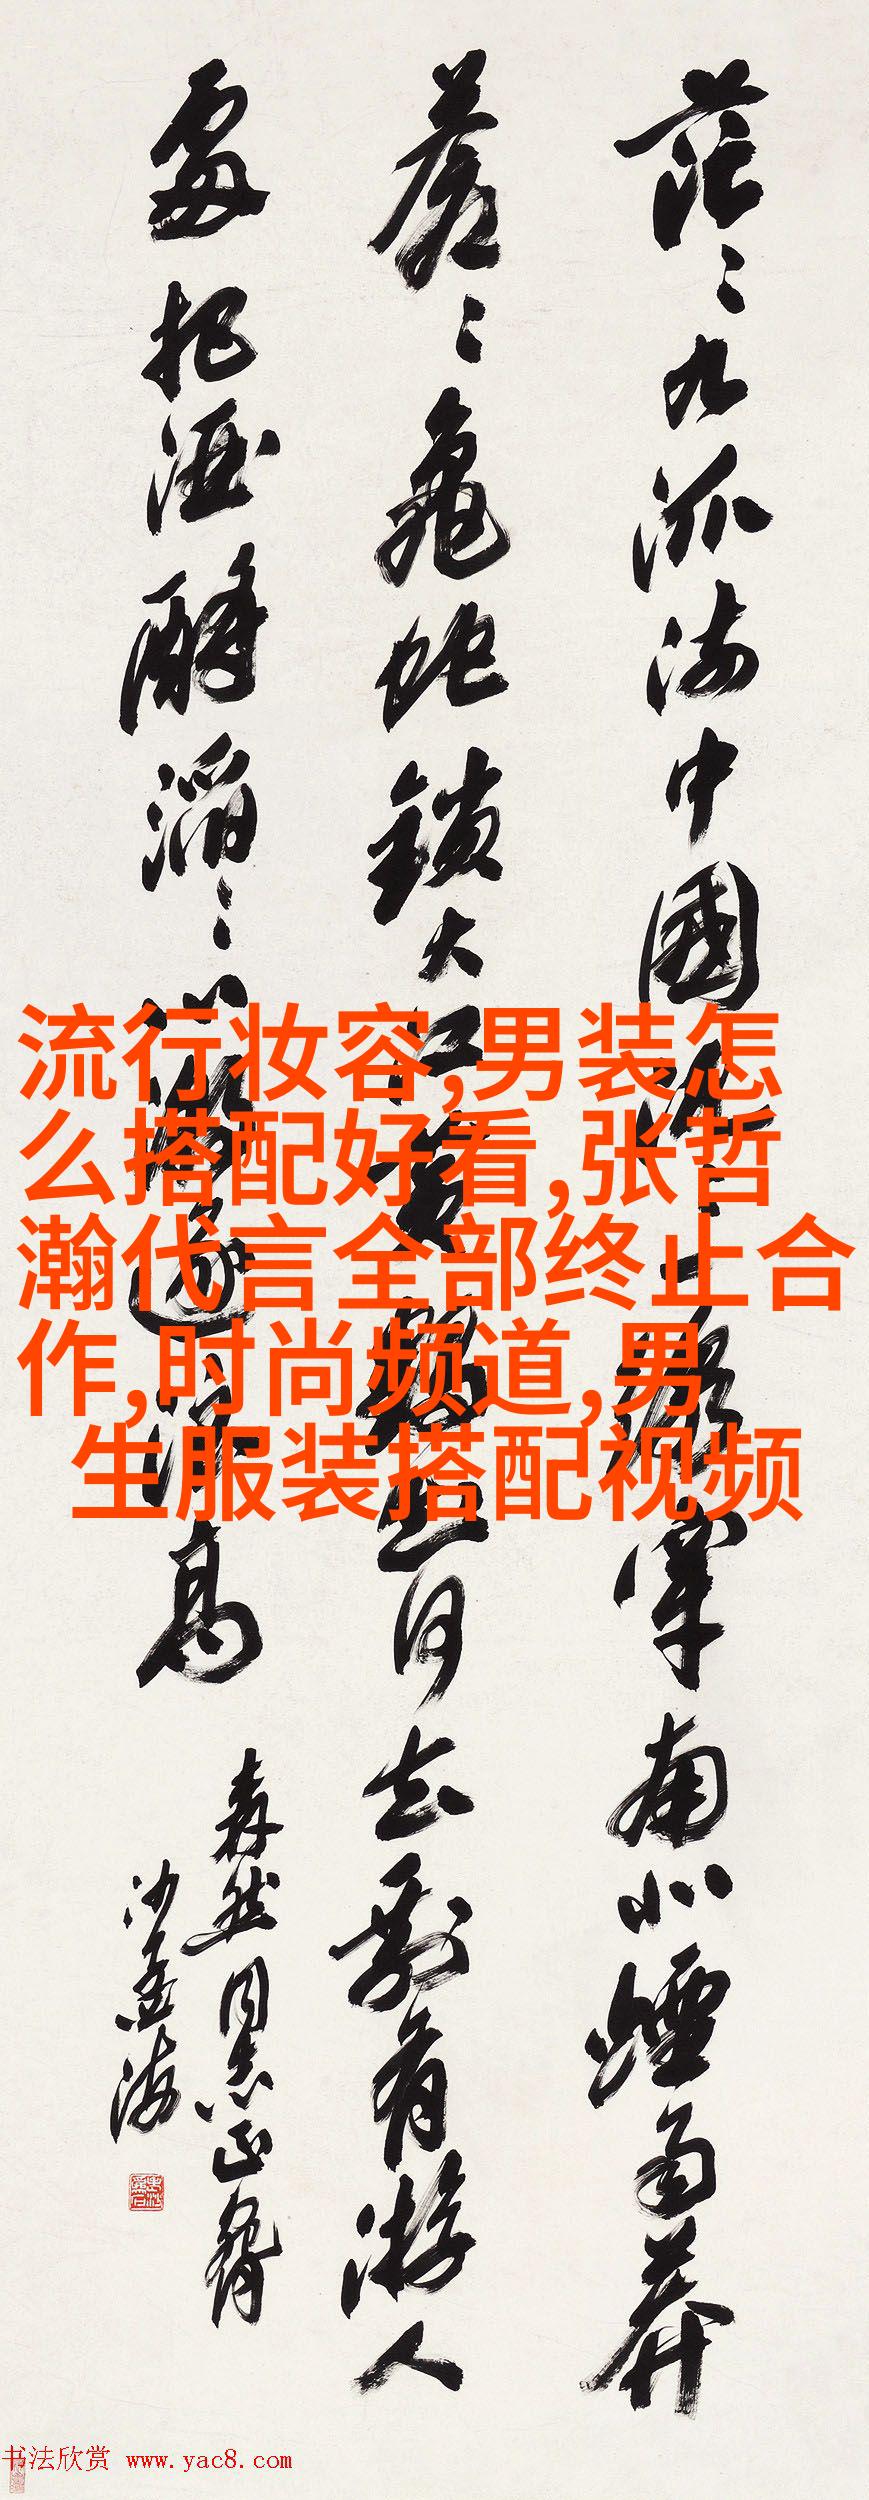 茫々九派流中國沈々一線穿南北煙雨莽
蒼々龜蛇鎖大江黃鶴知何去剩有游人
處把酒酹滔々心潮逐浪高
森然同志正
沙孟海
流行妆容,男装怎
么搭配好看,张哲
瀚代言全部终止合
作,时尚频道,男
生服装搭配视频
书法欣赏 www.yac8.com